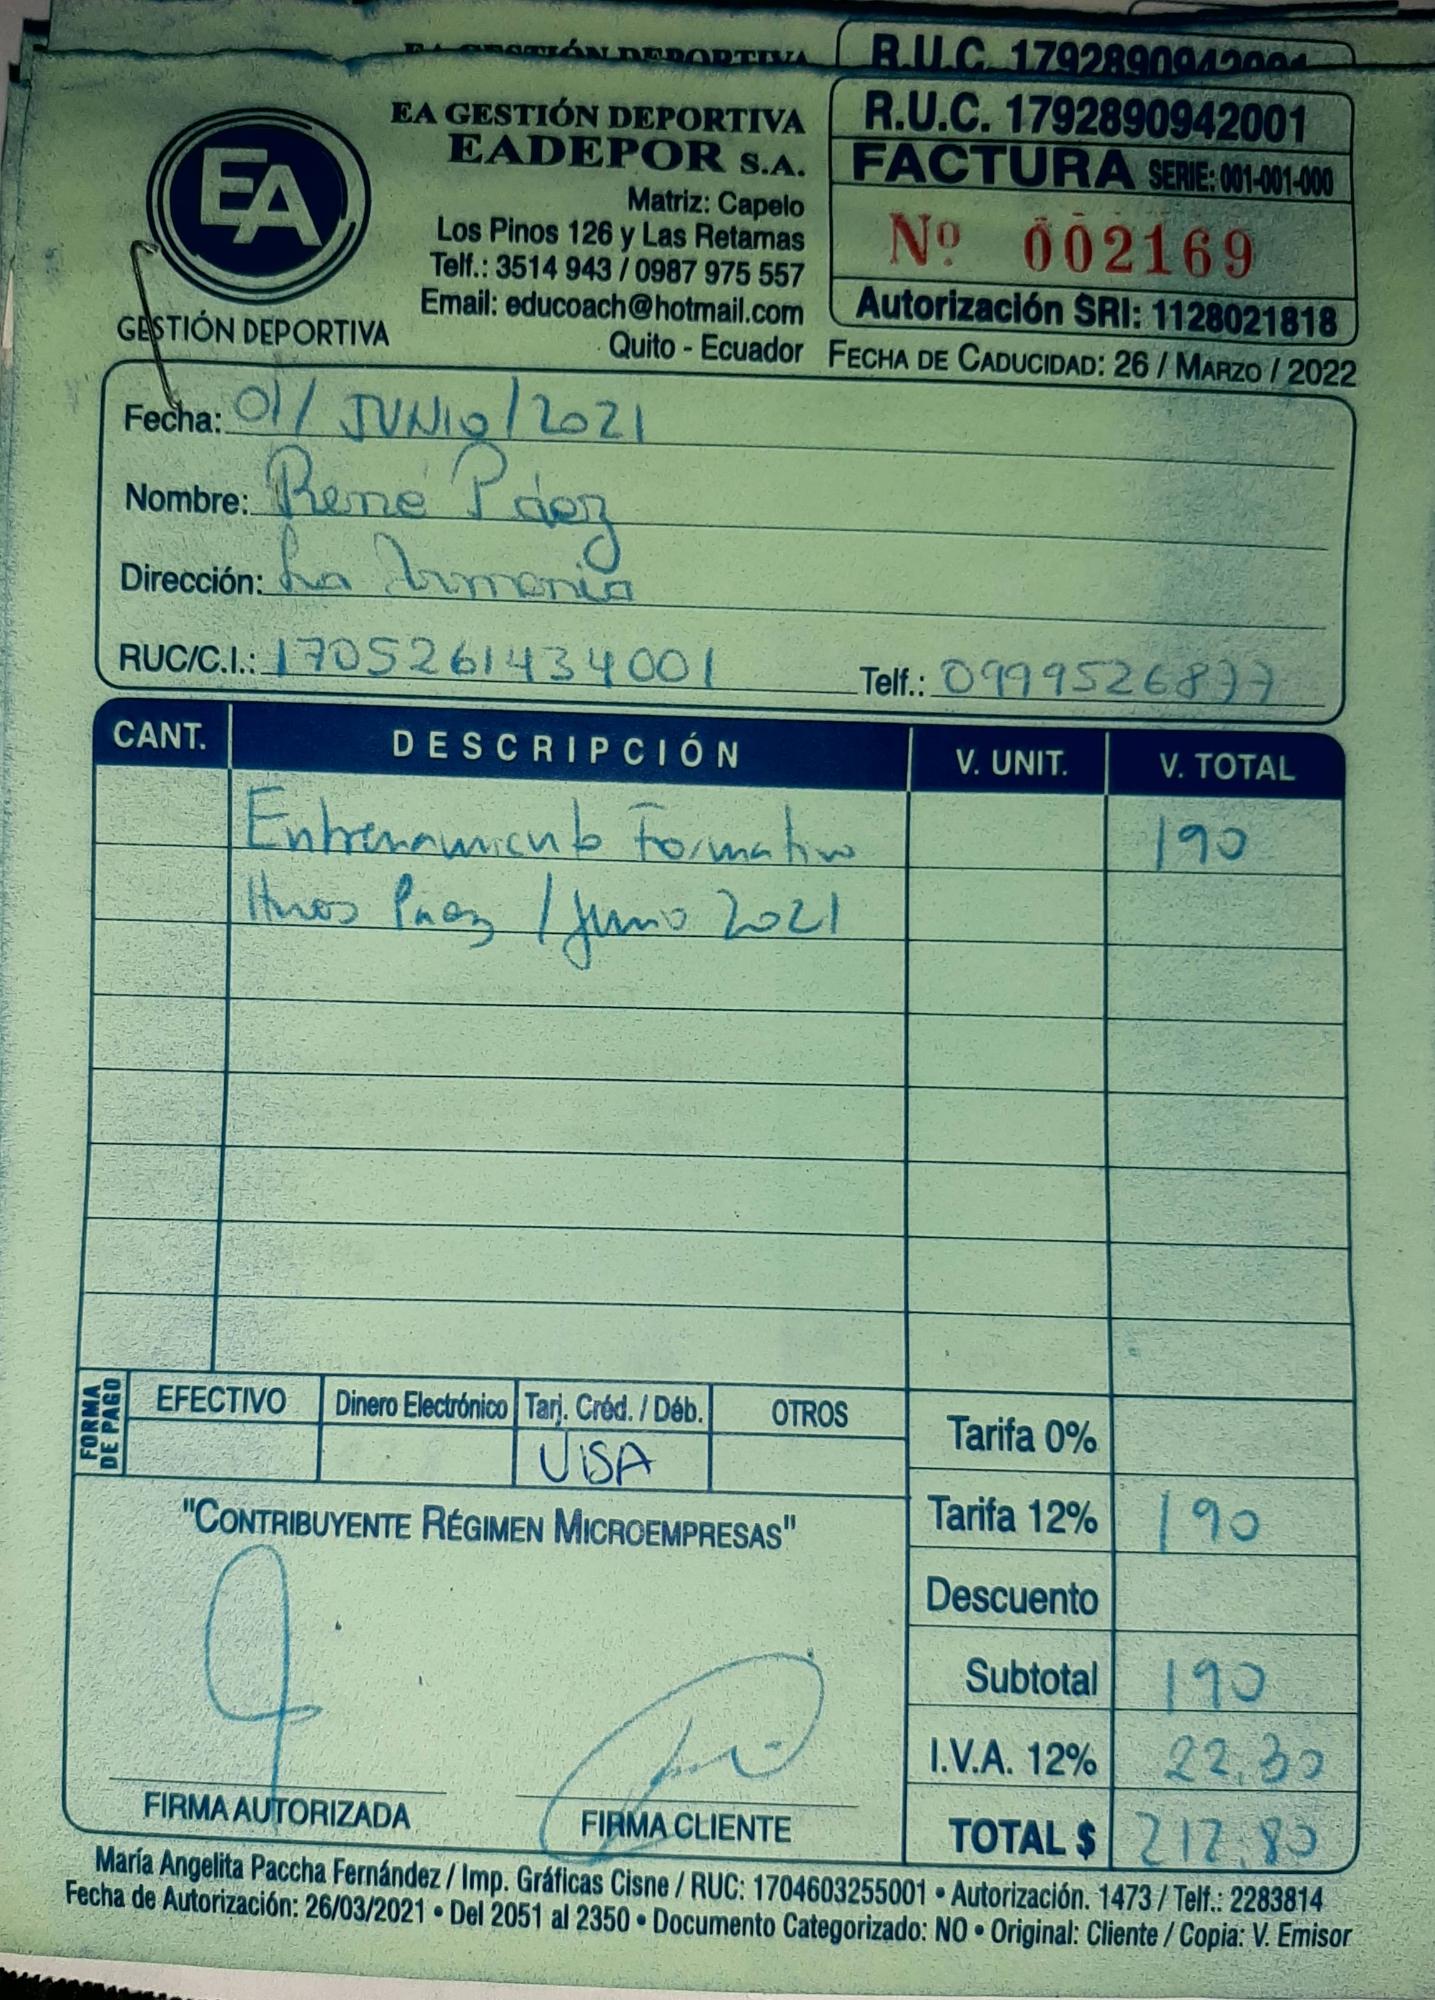 EA GESTIÓN DEPORTIVA
R.U.C. 1792890942001
EA
GESTIÓN DEPORTIVA
EA GESTIÓN DEPORTIVA
EADEPOR S.A.
Matriz: Capelo
Los Pinos 126 y Las Retamas
Telf.: 3514 943 / 0987 975 557
Email: educoach@hotmail.com
Quito - Ecuador
R.U.C. 1792890942001
FACTURA SERIE: 001-001-000
Nº 002169
Autorización SRI: 1128021818
FECHA DE CADUCIDAD: 26 / MARZO / 2022
Fecha: 01/ JUNIO/2021
Nombre: René Páez
Dirección: La Armenia
RUC/C.I.: 1705261434001 Telf.: 0999526877
CANT. DESCRIPCIÓN V. UNIT. V. TOTAL
Entrenamiento Formativo 190
Hnos Paez / Junio 2021
FORMA DE PAGO
EFECTIVO Dinero Electrónico Tarj. Créd. / Déb. OTROS
VISA
Tarifa 0%
Tarifa 12% 190
Descuento
Subtotal 190
I.V.A. 12% 22.30
TOTAL $ 212.80
"CONTRIBUYENTE RÉGIMEN MICROEMPRESAS"
FIRMA AUTORIZADA FIRMA CLIENTE
María Angelita Paccha Fernández / Imp. Gráficas Cisne / RUC: 1704603255001 • Autorización. 1473 / Telf.: 2283814
Fecha de Autorización: 26/03/2021 • Del 2051 al 2350 • Documento Categorizado: NO • Original: Cliente / Copia: V. Emisor